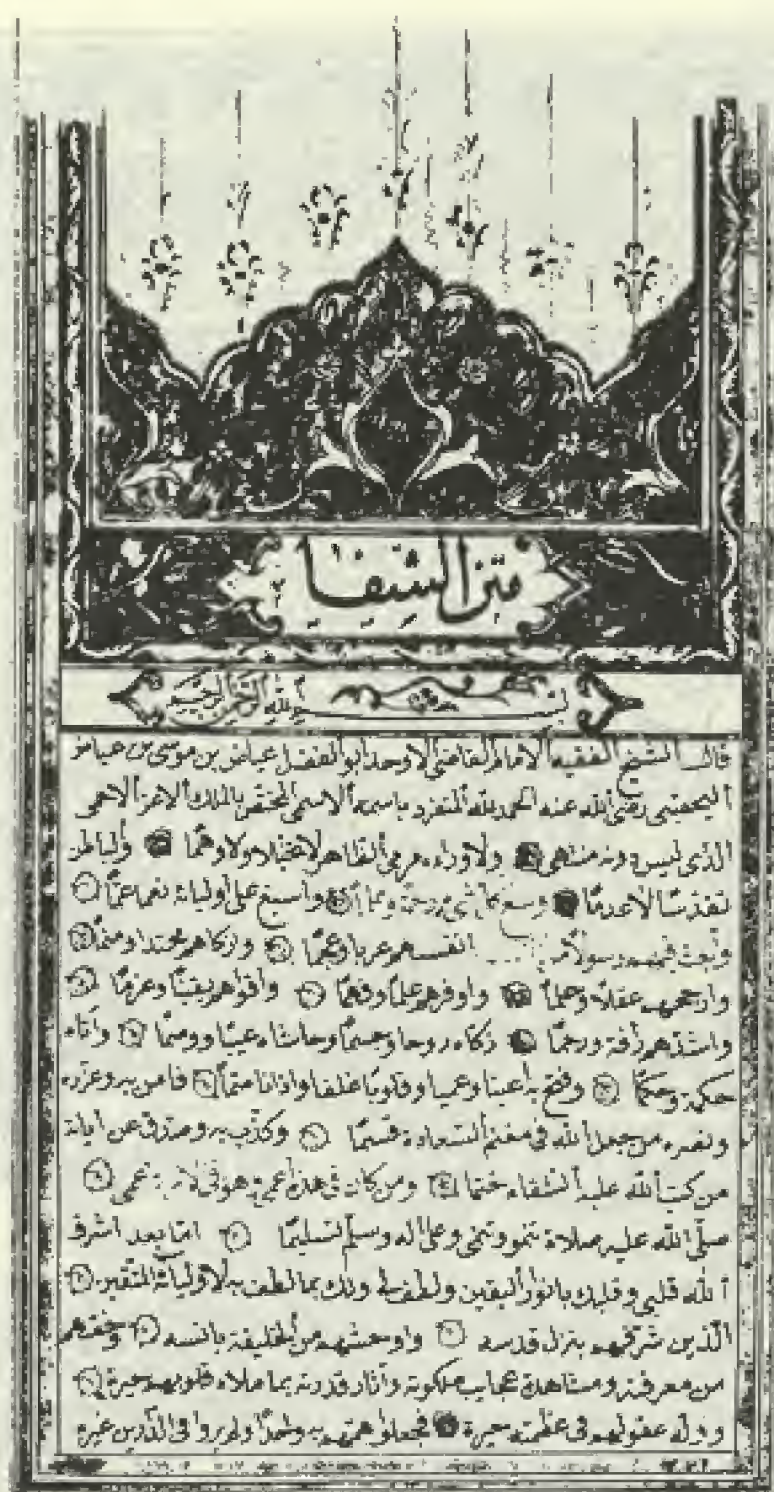 متن الشفا
بسم الله الرحمن الرحيم
قال الشيخ الفقيه الامام القاضي الاوحد ابو الفضل عياض بن موسى بن عياض
اليحصبي رضى الله عنه الحمد لله المتفرد باسمه الاسمى المختص بالملك الاعز الاحمى
الذى ليس دونه منتهى ولا وراءه مرمى الظاهر لا تخيلا ولا وهما والباطن
تقدسا لا عدما وسع كل شئ رحمة وعلما واسبغ على اوليائه نعما عما
وبعث فيهم رسولا من انفسهم عربا وعجما وازكاهم محتدا ومنما
وارجحهم عقلا وحلما واوفرهم علما وفهما واقواهم يقينا وعزما
واشدهم رأفة ورحما زكاه روحا وجسما وحاشاه عيبا ووصما وآتاه
حكمة وحكما وفتح به اعينا عميا وقلوبا غلفا واذانا صما فامن به وعزره
ونصره من جعل الله فى مغنم السعادة قسما وكذب به وصدف عن اياته
من كتب الله عليه الشقاء حتما ومن كان فى هذه اعمى فهو فى الاخرة اعمى
صلى الله عليه صلاة تنمو وتنمى وعلى اله وسلم تسليما اما بعد اشرق
الله قلبى وقلبك بانوار اليقين ولطف لى ولك بما لطف به لاوليائه المتقين
الذين شرفهم بنزل قدسه واوحشهم من الخليقة بانسه وخصهم
من معرفته ومشاهدة عجايب ملكوته وآثار قدرته بما ملاء قلوبهم حبرة
ووله عقولهم فى عظمته حيرة فجعلوا همهم به واحدا ولم يروا فى الدارين غيره